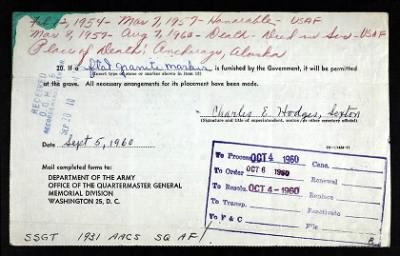 Feb 2, 1954 - Mar 7, 1957 - Honorable - USAF
Mar 8, 1957 - Aug 7, 1960 - Death - Died in Svs - USAF
Place of Death: Anchorage, Alaska
20. If a flat granite marker is furnished by the Government, it will be permitted
(Insert type of stone or marker shown in item 13)
at the grave. All necessary arrangements for its placement have been made.
RECEIVED
SEP 20 10
Charles E Hodges, Sexton
(Signature and title of superintendent, sexton, or other cemetery official)
Date Sept 5, 1960
Mail completed forms to:
DEPARTMENT OF THE ARMY
OFFICE OF THE QUARTERMASTER GENERAL
MEMORIAL DIVISION
WASHINGTON 25, D. C.
To Process OCT 4 1960 Canc.
To Order OCT 6 1960 Renewal
To Resolu. OCT 4 - 1960 Replace
To Transp.
To F & C File
SSGT 1931 AACS SQ AF